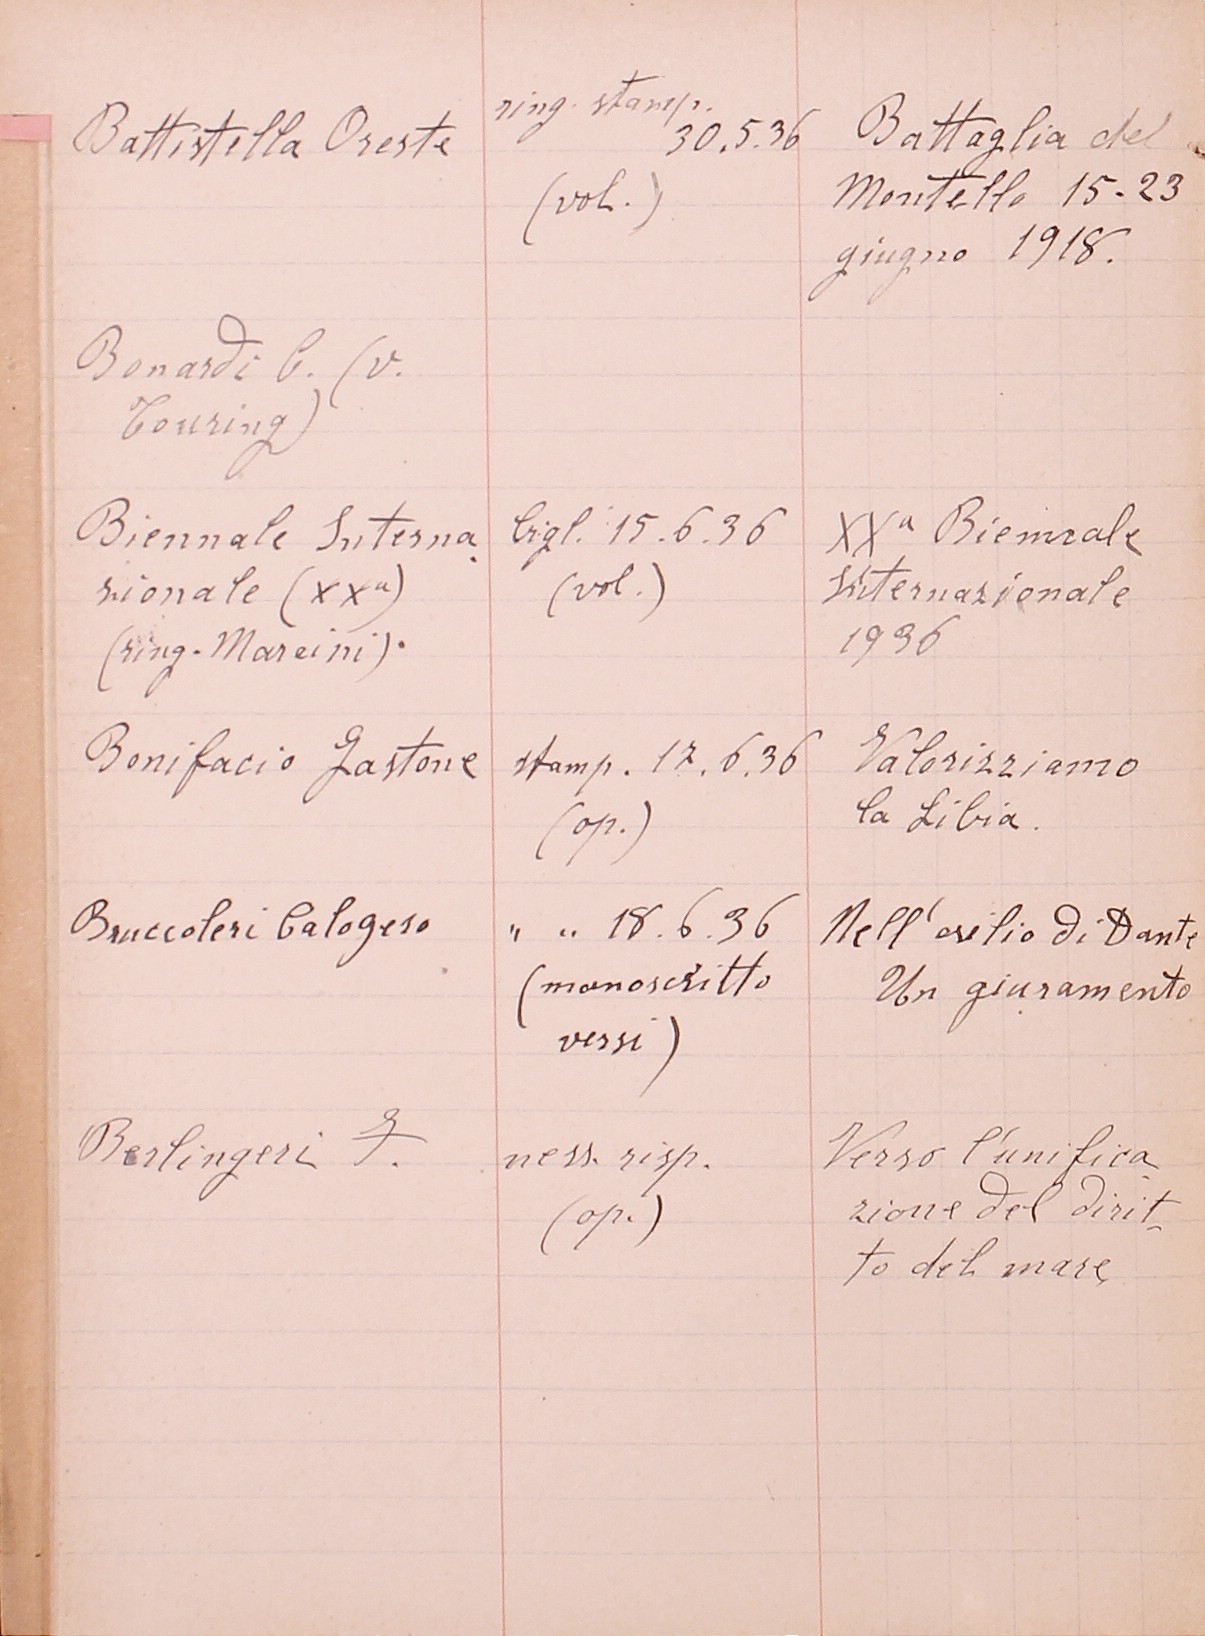 Battistella Oreste
ring. stamp.
30.5.36
(vol.)
Battaglia del
Montello 15-23
giugno 1918.
Bonardi C. (v.
Touring)
Biennale Interna
zionale (XXª)
(ring. Maraini).
Cigl. 15.6.36
(vol.)
XXª Biennale
Internazionale
1936
Bonifacio Gastone
stamp. 17.6.36
(op.)
Valorizziamo
la Libia.
Bruccoleri Calogero
" " 18.6.36
(manoscritto
versi)
Nell'esilio di Dante
Un giuramento
Berlingeri F.
ness. risp.
(op.)
Verso l'unifica
zione del dirit-
to del mare